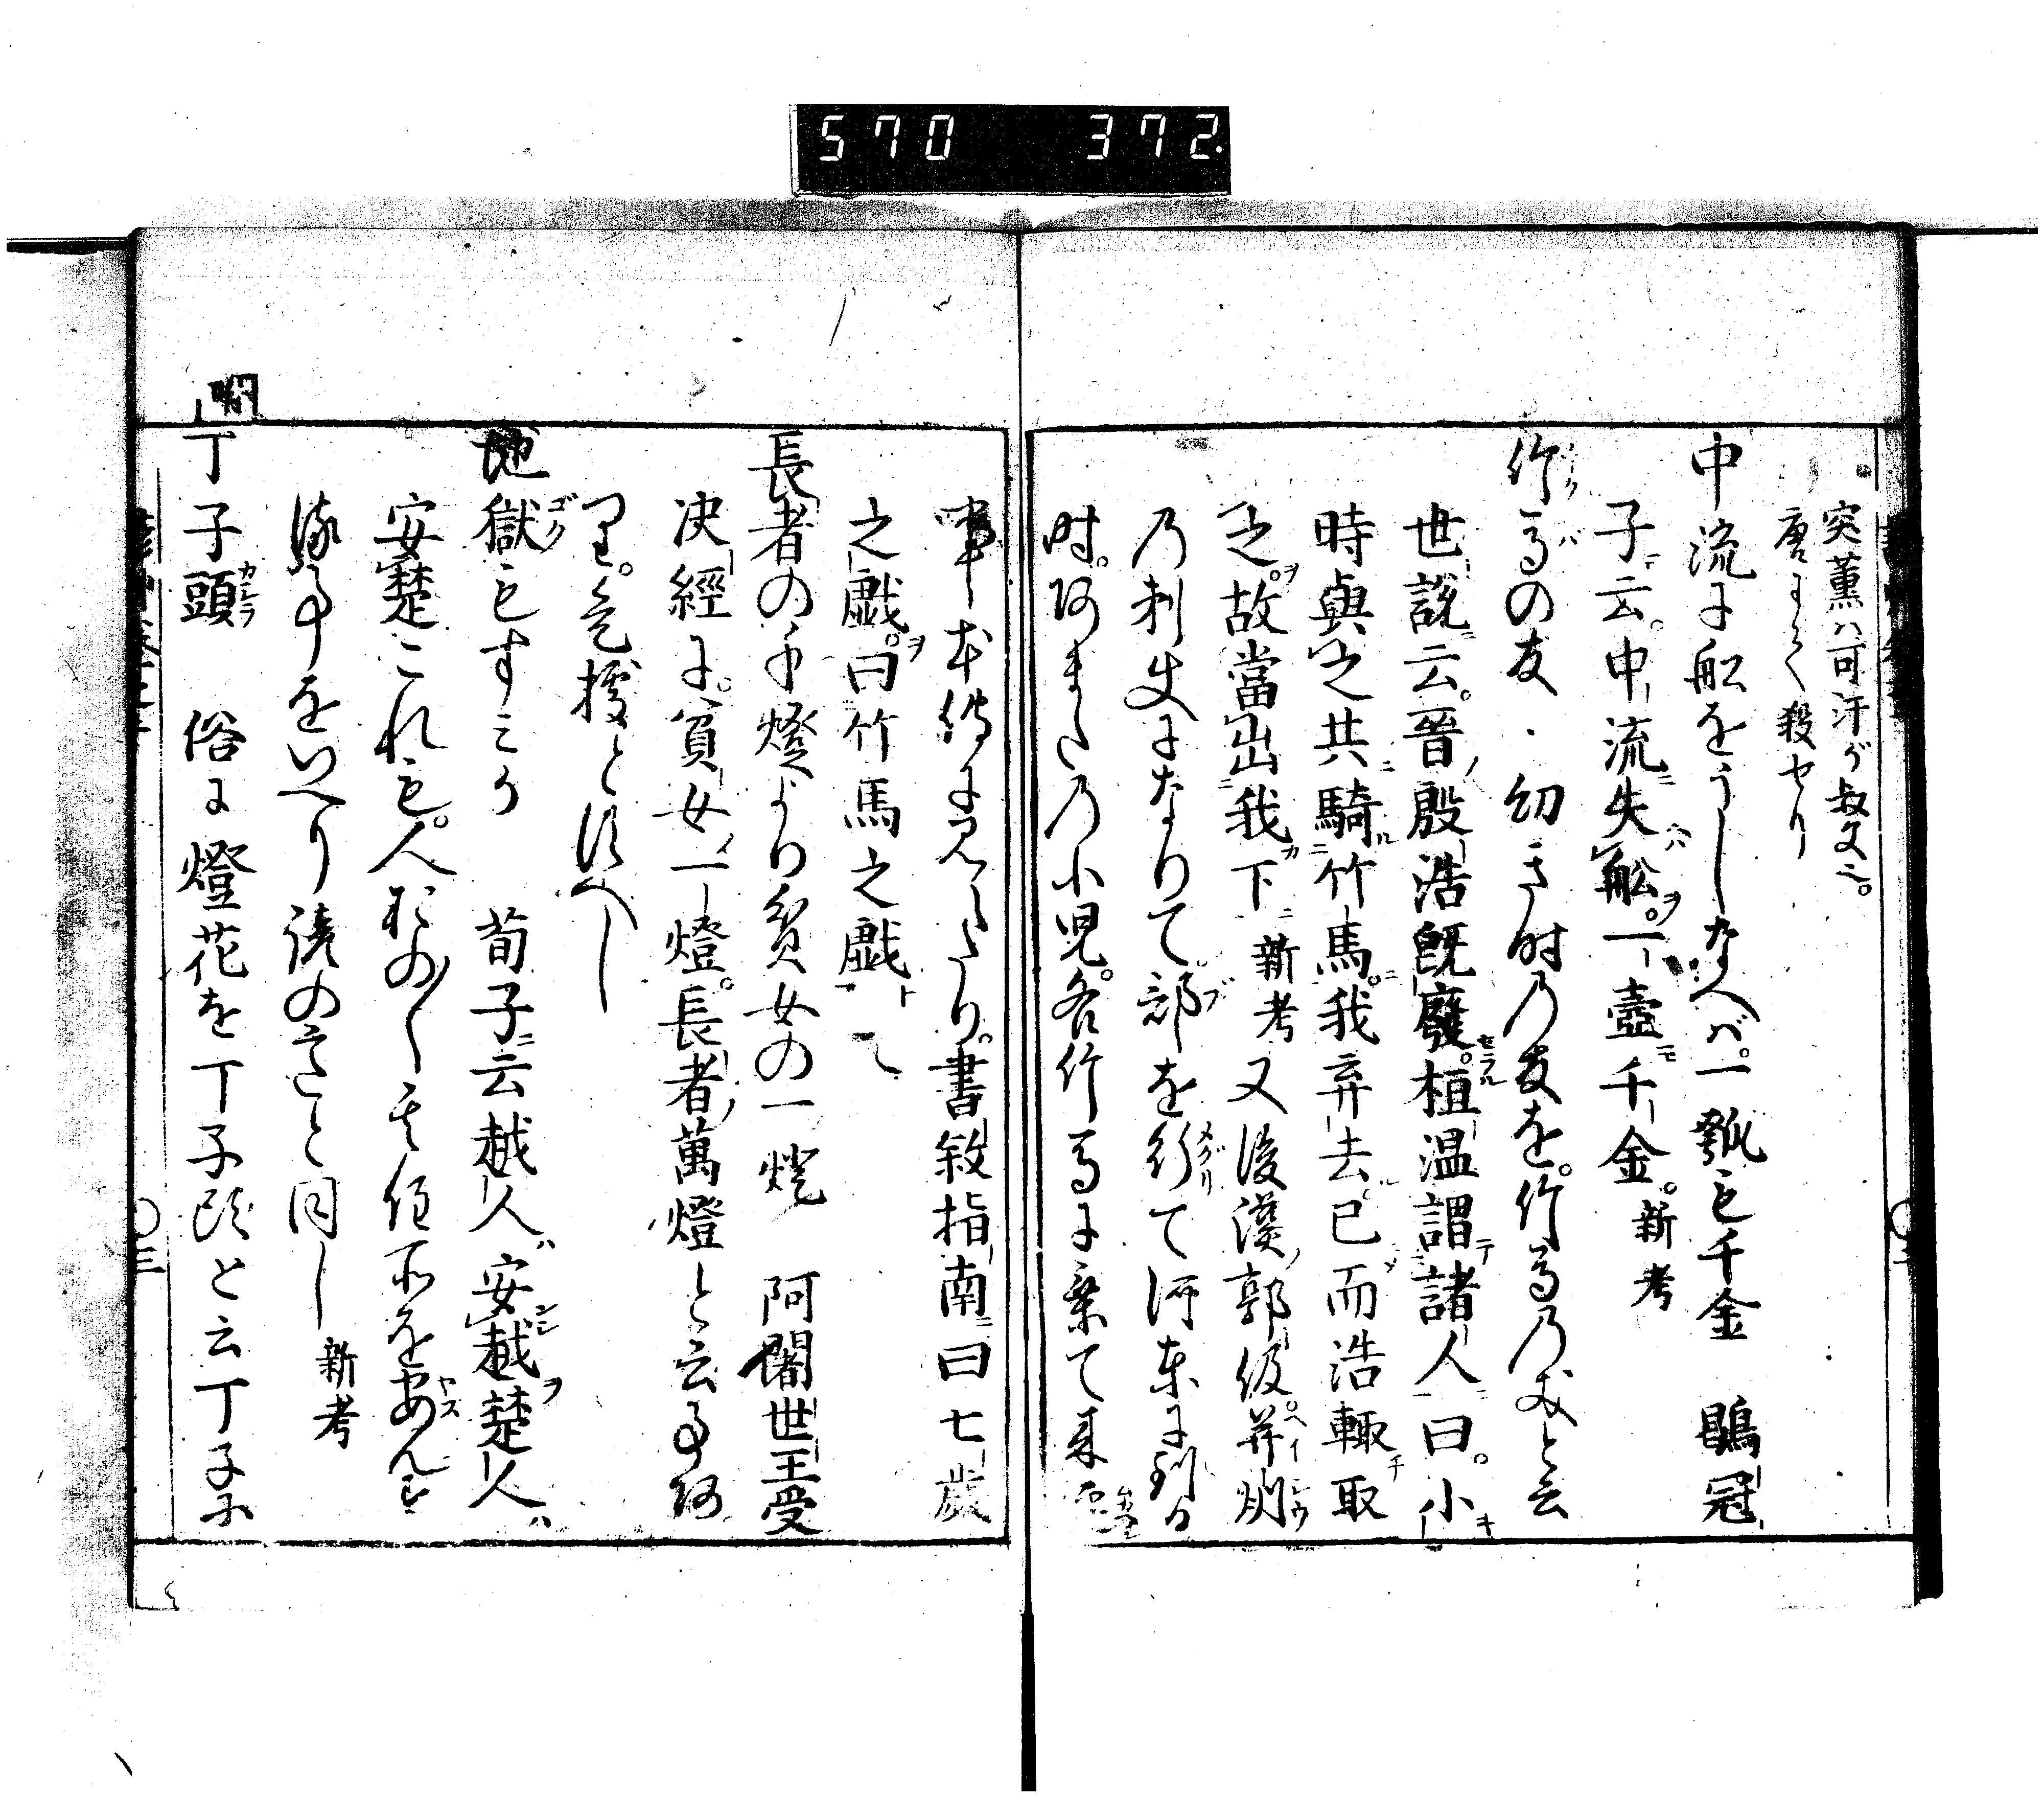 570 372.
突董ハ可汗が叔父也。
唐にて殺せり
中流に船をうしなへバ。一瓠も千金 鶡冠
子ニ云。中流ニ失ヘハ舩ヲ。一壺モ千金。新考
竹馬の友 幼き時の友を。竹馬の友と云
世説ニ云。晉ノ殷浩既廢セラル。桓温謂テ諸人ニ曰。小キ
時與之共ニ騎ル竹馬ニ。我弃去ル。已ニメ而浩輙チ取
之ヲ。故當出我カ下ニ 新考 又後漢ノ郭伋。并州
乃刺史になりて部を行て河東に到る
時。阿またの小児。各竹馬に乗て来
事本傳に見へたり。書敘指南ニ曰七歳
之戯ヲ。曰竹馬之戯ト
長者の万燈より貧女の一燈 阿闍世王受
決經に。貧女ノ一燈。長者ノ萬燈と云事阿
り。是據とすへし
地獄もすミか 荀子ニ云越人ハ安越ヲ楚人ハ
安楚これも。人おの〱其住所を安んず
る事をいへり諺のこゝろと同し 新考
丁子頭 俗に燈花を丁子頭と云丁子に
〇三